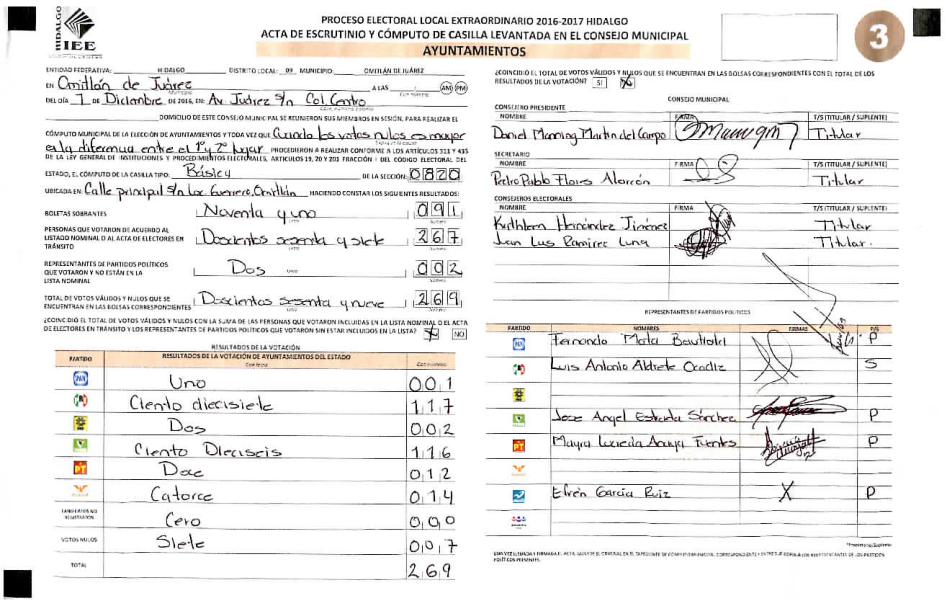 HIDALGO
IEE
PROCESO ELECTORAL LOCAL EXTRAORDINARIO 2016-2017 HIDALGO
ACTA DE ESCRUTINIO Y CÓMPUTO DE CASILLA LEVANTADA EN EL CONSEJO MUNICIPAL
AYUNTAMIENTOS
3
ENTIDAD FEDERATIVA: HIDALGO DISTRITO LOCAL: 09 MUNICIPIO: OMITLÁN DE JUÁREZ
EN Omitlán de Juárez A LAS AM PM
DEL DÍA 7 DE Diciembre DE 2016, EN: Av. Juárez S/n Col Centro
DOMICILIO DE ESTE CONSEJO MUNICIPAL SE REUNIERON SUS MIEMBROS EN SESIÓN, PARA REALIZAR EL
CÓMPUTO MUNICIPAL DE LA ELECCIÓN DE AYUNTAMIENTOS Y TODA VEZ QUE Cuando los votos nulos es mayor
a la diferencia entre el 1° y 2° lugar PROCEDIERON A REALIZAR CONFORME A LOS ARTÍCULOS 311 Y 435
DE LA LEY GENERAL DE INSTITUCIONES Y PROCEDIMIENTOS ELECTORALES, ARTÍCULOS 19, 20 y 203 FRACCIÓN I DEL CÓDIGO ELECTORAL DEL
ESTADO, EL CÓMPUTO DE LA CASILLA TIPO: Básica DE LA SECCIÓN: 0820
UBICADA EN: Calle principal S/n Loc Guerrero, Omitlán HACIENDO CONSTAR LOS SIGUIENTES RESULTADOS:
BOLETAS SOBRANTES Noventa y uno 091
PERSONAS QUE VOTARON DE ACUERDO AL
LISTADO NOMINAL O AL ACTA DE ELECTORES EN
TRÁNSITO Doscientos sesenta y siete 267
REPRESENTANTES DE PARTIDOS POLÍTICOS
QUE VOTARON Y NO ESTÁN EN LA
LISTA NOMINAL Dos 002
TOTAL DE VOTOS VÁLIDOS Y NULOS QUE SE
ENCUENTRAN EN LAS BOLSAS CORRESPONDIENTES Doscientos sesenta y nueve 269
¿COINCIDIÓ EL TOTAL DE VOTOS VÁLIDOS Y NULOS CON LA SUMA DE LAS PERSONAS QUE VOTARON INCLUIDAS EN LA LISTA NOMINAL O AL ACTA
DE ELECTORES EN TRÁNSITO Y LOS REPRESENTANTES DE PARTIDOS POLÍTICOS QUE VOTARON SIN ESTAR INCLUIDOS EN LA LISTA? NO
RESULTADOS DE LA VOTACIÓN
PARTIDO RESULTADOS DE LA VOTACIÓN DE AYUNTAMIENTOS DEL ESTADO
Con letra Con número
PAN Uno 001
PRI Ciento diecisiete 117
PRD Dos 002
Ciento Dieciseis 116
PT Doce 012
Catorce 014
CANDIDATOS NO
REGISTRADOS Cero 000
VOTOS NULOS Siete 007
TOTAL 269
¿COINCIDIÓ EL TOTAL DE VOTOS VÁLIDOS Y NULOS QUE SE ENCUENTRAN EN LAS BOLSAS CORRESPONDIENTES CON EL TOTAL DE LOS
RESULTADOS DE LA VOTACIÓN? SI
CONSEJO MUNICIPAL
CONSEJERO PRESIDENTE
NOMBRE FIRMA T/S (TITULAR / SUPLENTE)
Daniel Manning Martin del Campo Titular
SECRETARIO
NOMBRE FIRMA T/S (TITULAR / SUPLENTE)
Pedro Pablo Flores Alarcón Titular
CONSEJEROS ELECTORALES
NOMBRE FIRMA T/S (TITULAR / SUPLENTE)
Kathleen Hernández Jiménez Titular
Juan Luis Ramirez Luna Titular.
REPRESENTANTES DE PARTIDOS POLÍTICOS
PARTIDO NOMBRES FIRMAS P/S
PAN Fernando Mata P
PRI Luis Antonio Aldrete Ocadiz S
Jose Angel Estrada Sánchez P
PT Mayra Lucecia Fuentes P
Efrén García Ruiz X P
*Propietario/Suplente
UNA VEZ LLENADA Y FIRMADA EL ACTA,
POLÍTICOS PRESENTES.